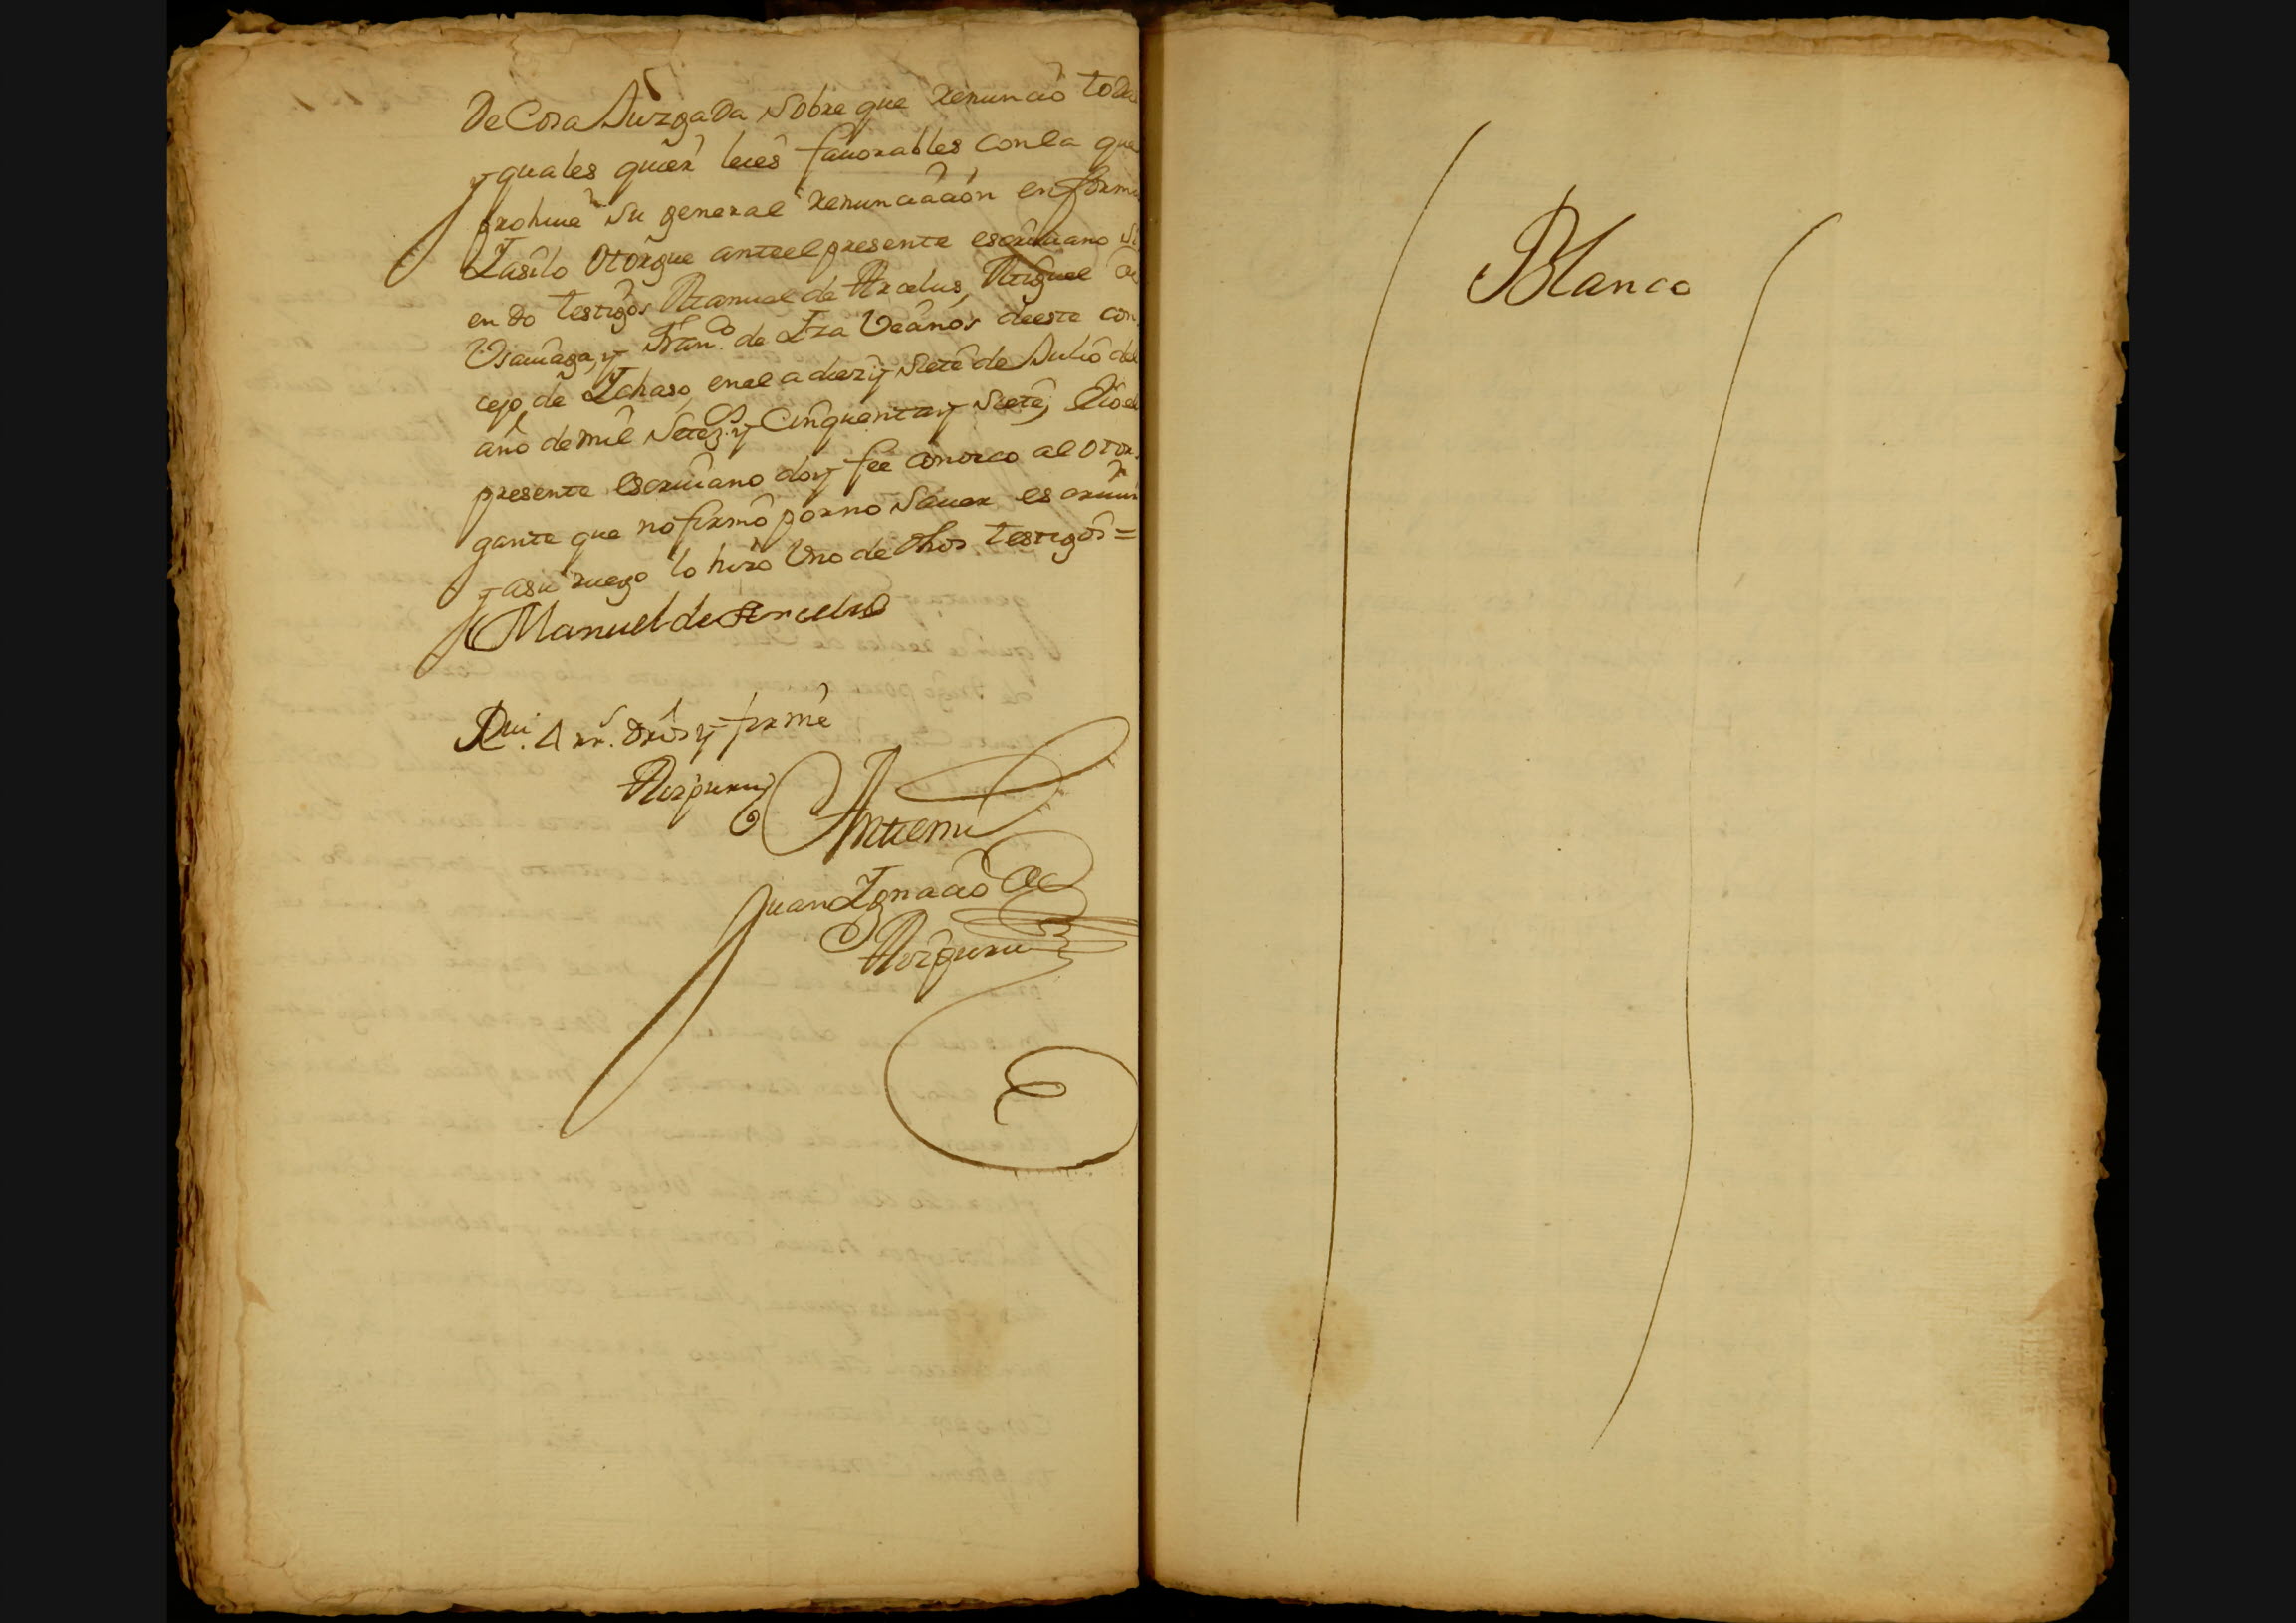 De Cosa Juzgada sobre que renunció todas
y quales quier leies fauorables con la que
prohiue su general renunciación en forma
I asilo Otorgue ante el presente escriuano si
endo testigos Manuel de Arcelus, Miguel de
Vsauiaga, y Fran.co de Iza Veanos de este con
cejo de Ichaso, en el a diez y siete de Julio del
año de mil setez.s y Cinquenta y siete, E io el
presente escriuano doy fee conozco al otor
gante que no firmó por no sauer escriuir
y a su ruego lo hizo Vno de dhos testigos =
Manuel de Arcelus
Rui. 4 rr.s drôs y firmé
Aizpuru
Antemi
Juan Ignacio de
Aizpuru
Blanco